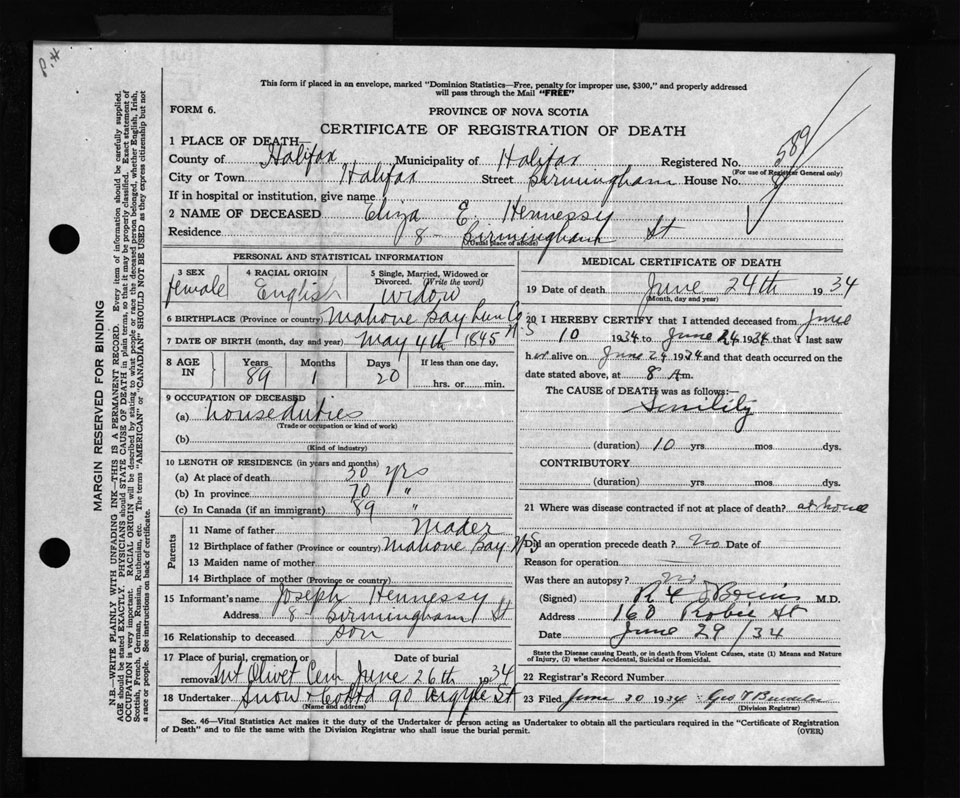 P.H.
This form if placed in an envelope, marked "Dominion Statistics—Free, penalty for improper use, $300," and properly addressed
will pass through the Mail "FREE"
FORM 6.
PROVINCE OF NOVA SCOTIA
CERTIFICATE OF REGISTRATION OF DEATH
1 PLACE OF DEATH
County of Halifax Municipality of Halifax Registered No. 589
(For use of Registrar General only)
City or Town Halifax Street Birmingham House No. 8
If in hospital or institution, give name
2 NAME OF DECEASED Eliza E. Hennessy
Residence 8 Birmingham St
(Usual place of abode)
PERSONAL AND STATISTICAL INFORMATION
3 SEX female
4 RACIAL ORIGIN English
5 Single, Married, Widowed or Divorced. (Write the word) widow
6 BIRTHPLACE (Province or country) Mahone Bay Lun Co N S
7 DATE OF BIRTH (month, day and year) May 4th 1845
8 AGE IN Years 89 Months 1 Days 20 If less than one day, hrs. or min.
9 OCCUPATION OF DECEASED
(a) house duties
(Trade or occupation or kind of work)
(b)
(Kind of industry)
10 LENGTH OF RESIDENCE (in years and months)
(a) At place of death 30 yrs
(b) In province 70 "
(c) In Canada (if an immigrant) 89 "
Parents
11 Name of father Mader
12 Birthplace of father (Province or country) Mahone Bay N S
13 Maiden name of mother
14 Birthplace of mother (Province or country)
15 Informant's name Joseph Hennessy
Address 8 Birmingham St
16 Relationship to deceased son
17 Place of burial, cremation or removal Mt Olivet Cem Date of burial June 26th 1934
18 Undertaker Snow & Co Ltd 90 Argyle St
(Name and address)
MEDICAL CERTIFICATE OF DEATH
19 Date of death June 24th 1934
(Month, day and year)
20 I HEREBY CERTIFY that I attended deceased from June
10 1934 to June 24 1934 that I last saw
her alive on June 24 1934 and that death occurred on the
date stated above, at 8 A m.
The CAUSE OF DEATH was as follows:
Senility
(duration) 10 yrs mos. dys.
CONTRIBUTORY
(duration) yrs. mos. dys.
21 Where was disease contracted if not at place of death? at home
Did an operation precede death? no Date of
Reason for operation
Was there an autopsy? no
(Signed) M.D.
Address 160 Robie St
Date June 29/34
State the Disease causing Death, or in death from Violent Causes, state (1) Means and Nature of Injury, (2) whether Accidental, Suicidal or Homicidal.
22 Registrar's Record Number
23 Filed June 30 1934 Geo
(Division Registrar)
Sec. 46—Vital Statistics Act makes it the duty of the Undertaker or person acting as Undertaker to obtain all the particulars required in the "Certificate of Registration
of Death" and to file the same with the Division Registrar who shall issue the burial permit.
(OVER)
MARGIN RESERVED FOR BINDING
N.B.—WRITE PLAINLY WITH UNFADING INK—THIS IS A PERMANENT RECORD. Every item of information should be carefully supplied.
AGE should be stated EXACTLY. PHYSICIANS should STATE CAUSE OF DEATH in plain terms, so that it may be properly classified. Exact statement of
OCCUPATION is very important. RACIAL ORIGIN will be described by stating to what people or race the deceased person belonged, whether English, Irish,
Scottish, French, German, Russian, Ruthenian, etc. The terms "AMERICAN" or "CANADIAN" SHOULD NOT BE USED as they express citizenship but not
a race or people. See instructions on back of certificate.